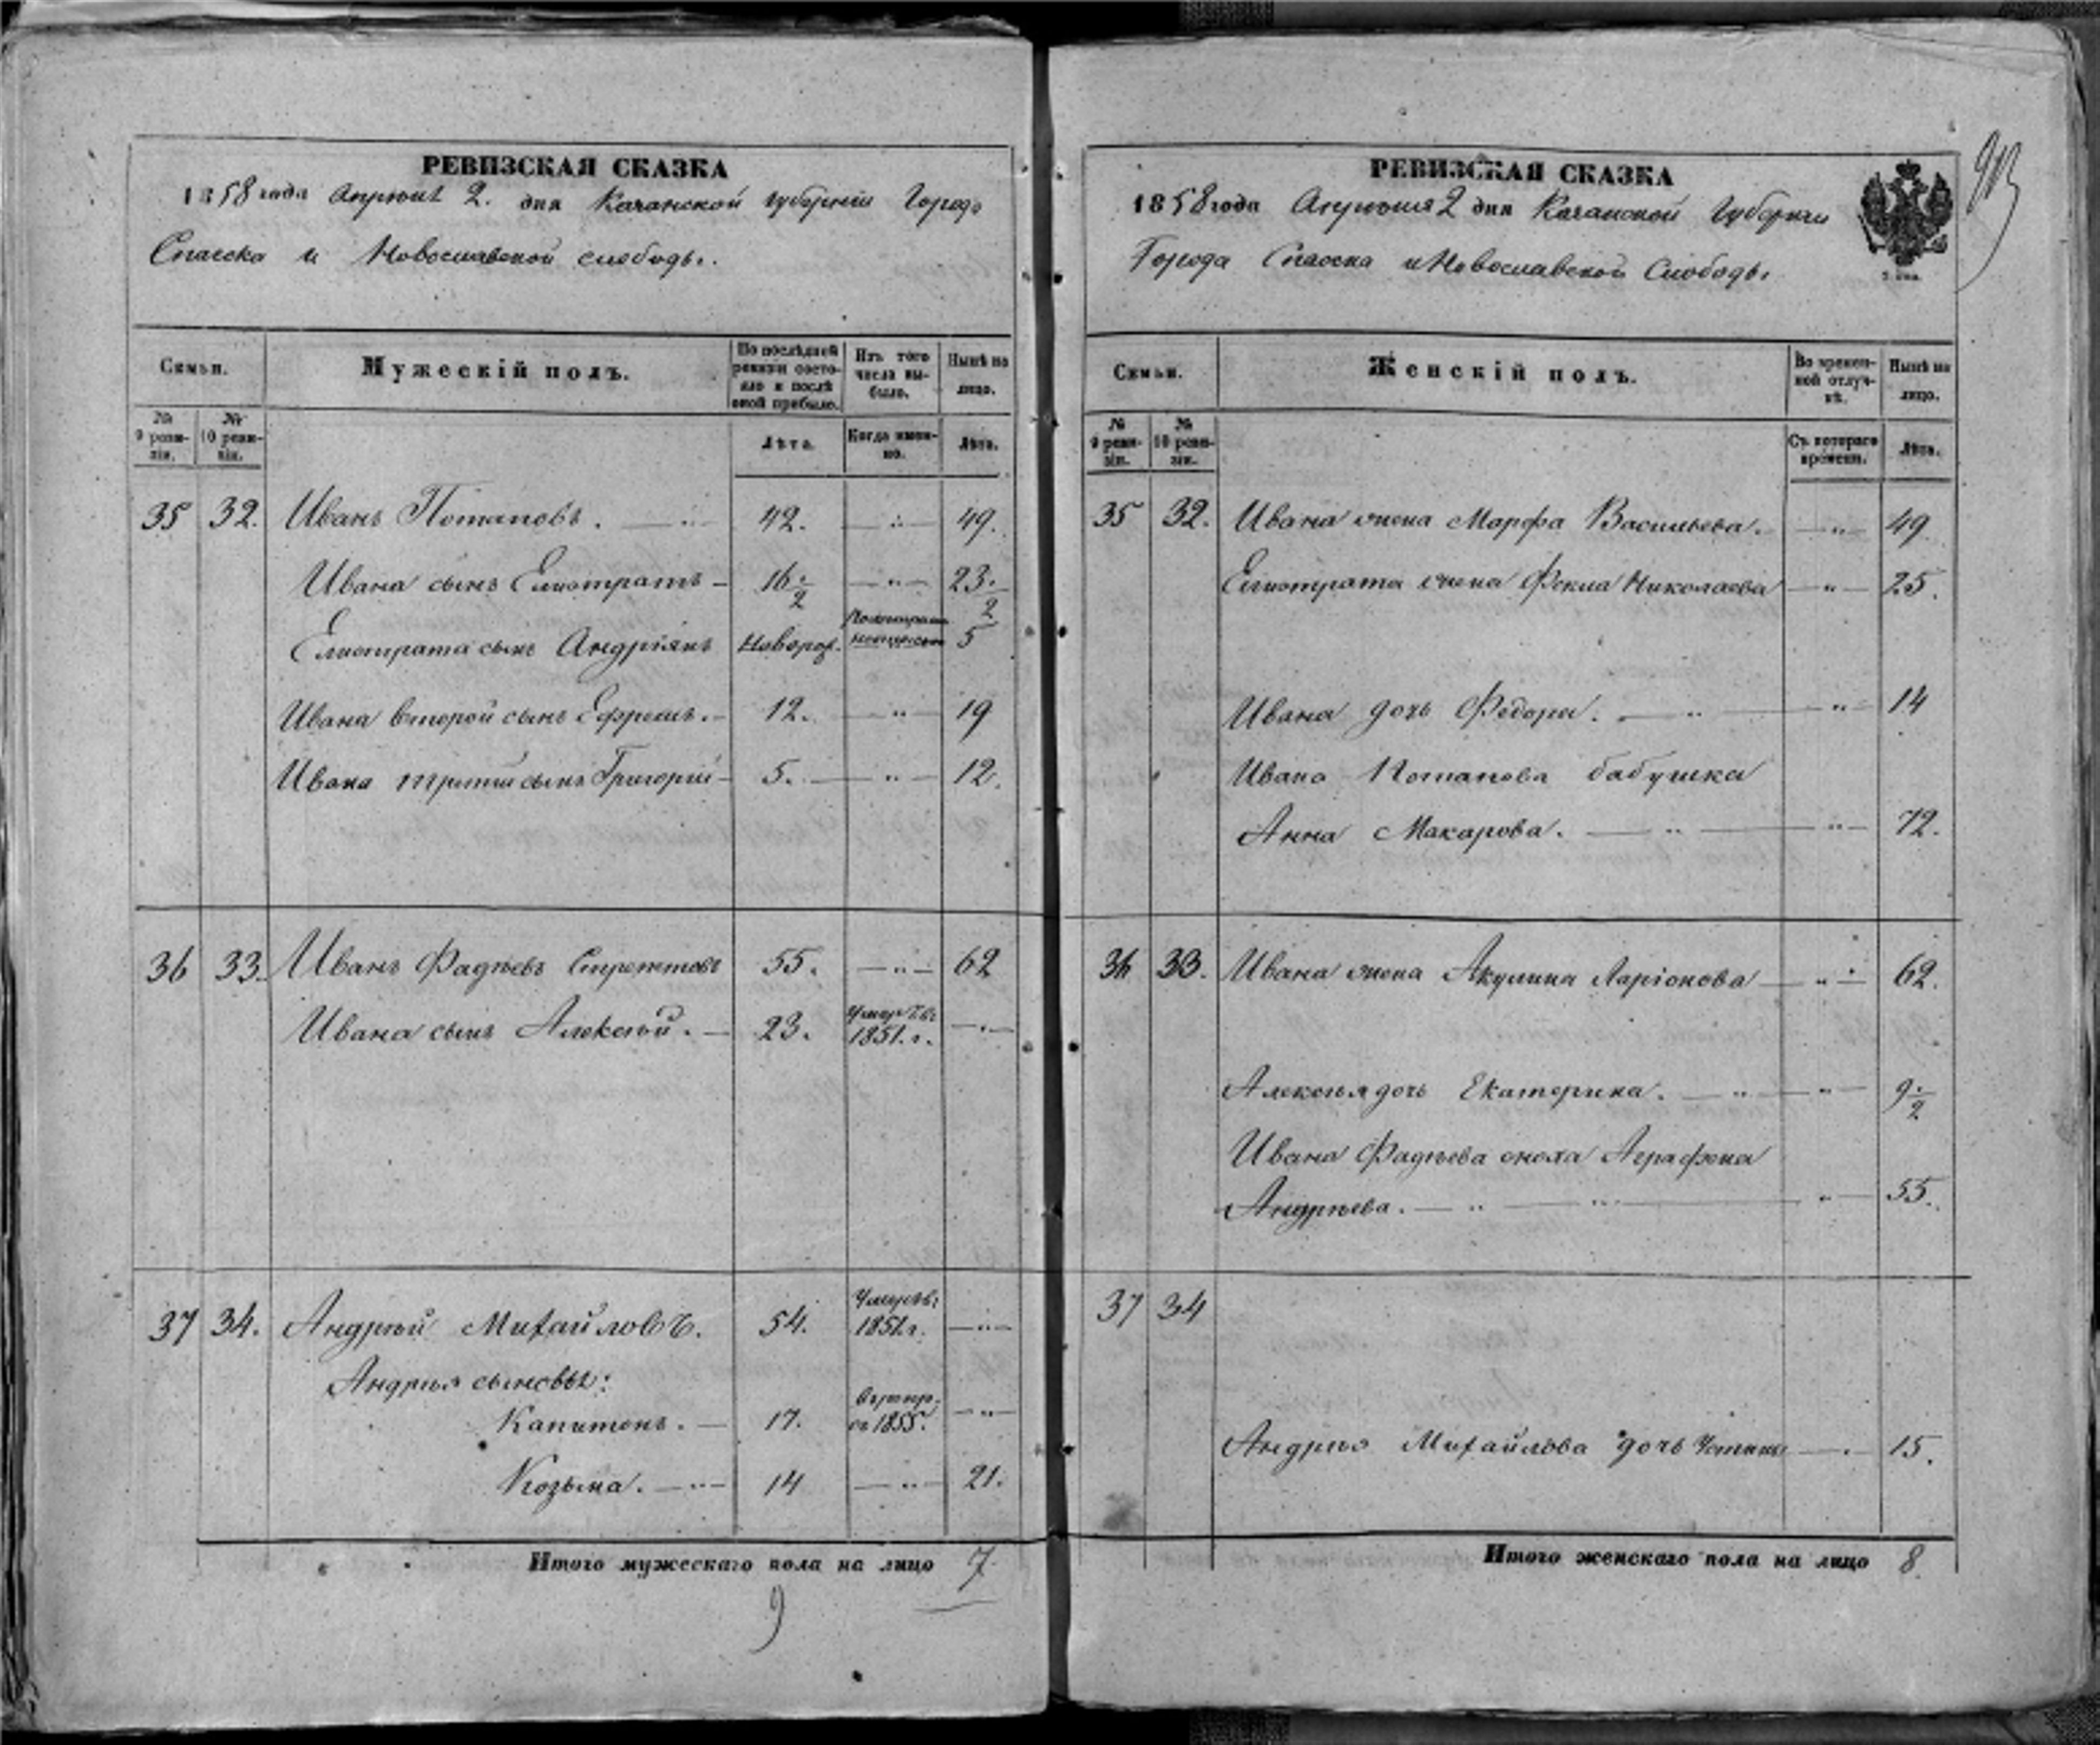 РЕВИЗСКАЯ СКАЗКА
1858 года Апреля 2. дня Казанской губернiи Города
Спасска и Новославской слободы.
Семьи.
Мужескiй полъ.
По послѣдней ревизiи состояло и послѣ оной прибыло.
Изъ того числа выбыло.
Нынѣ на лицо.
№ 9 ревизiи.
№ 10 ревизiи.
Лѣта.
Когда именно.
Лѣта.
35 32. Иванъ Потаповъ. 42. 49.
Ивана сынъ Елистратъ 16 1/2 23 1/2
Елистрата сынъ Андріянъ Новорож. 5
Ивана второй сынъ Ефремъ. 12. 19
Ивана третій сынъ Григорій 5. 12.
36 33. Иванъ Фадѣевъ 55. 62
Ивана сынъ Алексѣй. 23. 1851. г.
37 34. Андрей Михайловъ. 54. 1851. г.
Андрея сыновья:
Капитонъ. 17. въ 1855.
Козьма. 14 21.
Итого мужескаго пола на лицо 7.
9
РЕВИЗСКАЯ СКАЗКА
1858 года Апреля 2 дня Казанской Губернiи
Города Спасска и Новославской Слободы
Семьи.
Женскiй полъ.
Во временной отлучкѣ.
Нынѣ на лицо.
№ 9 ревизiи.
№ 10 ревизiи.
Съ котораго времени.
Лѣта.
35 32. Ивана жена Марфа Васильева. 49
Елистрата жена Фекла Николаева 25.
Ивана дочь Федора. 14
Ивана Потапова бабушка
Анна Макарова. 72.
36 33. Ивана жена Акулина Ларіонова 62.
Алексѣя дочь Екатерина. 9 1/2
Ивана Фадѣева сноха Аграфена
Андрѣева. 55.
37 34
Андрея Михайлова дочь Устинья 15.
Итого женскаго пола на лицо 8.